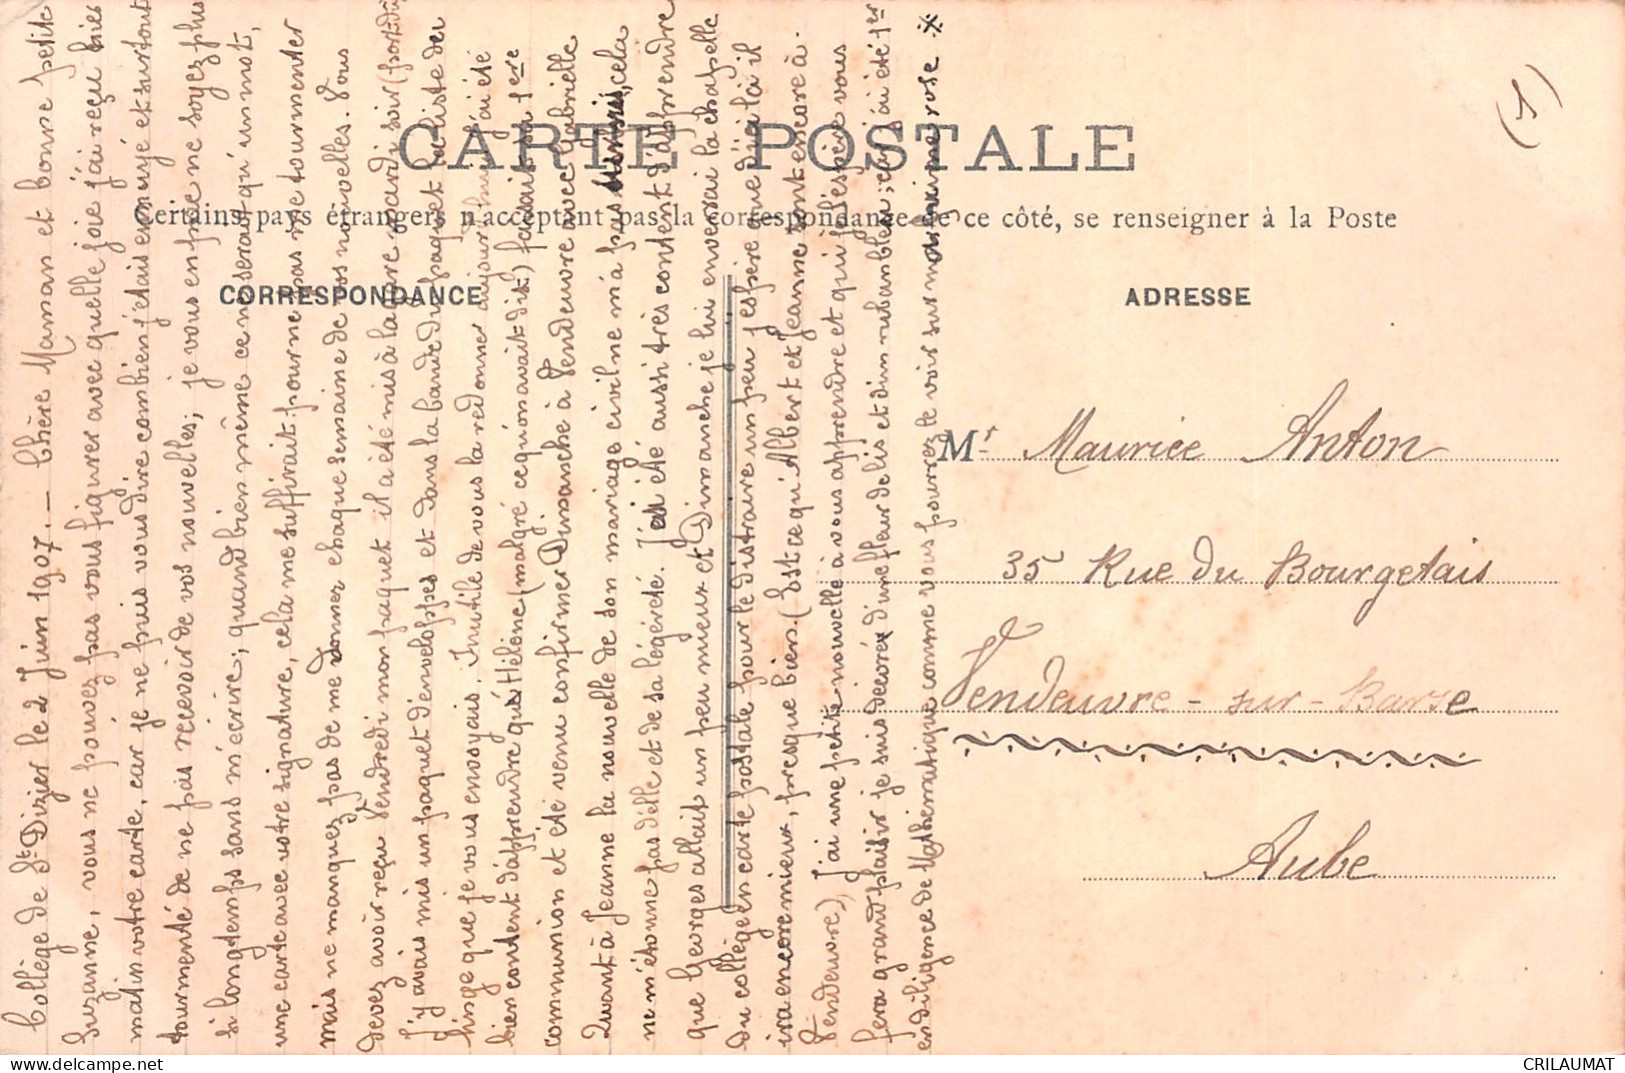 (1)
CARTE POSTALE
Certains pays étrangers n'acceptant pas la correspondance de ce côté, se renseigner à la Poste
CORRESPONDANCE
ADRESSE
Collège de St Dizier le 2 Juin 1907. – Chère Maman et bonne petite
Suzanne, vous ne pouvez pas vous figurer avec quelle joie j'ai reçu hier
matin votre carte, car je ne puis vous dire combien j'étais ennuyé et surtout
tourmenté de ne pas recevoir de vos nouvelles; je vous en prie ne soyez plus
si longtemps sans m'écrire; quand bien même ce ne serait qu'un mot,
une carte avec votre signature, cela me suffirait pour ne pas me tourmenter
mais ne manquez pas de me donner chaque semaine de vos nouvelles. Vous
devez avoir reçu Vendredi mon paquet il a été mis à la gare mardi soir (port dû)
j'y avais mis un paquet d'enveloppes et dans la bande du paquet la liste du
linge que je vous envoyais. Inutile de vous la redonner aujourd'hui, j'ai été
bien content d'apprendre que Hélène (malgré ce qu'on avait dit) faisait sa 1ere
communion et été venu confirmer Dimanche à Vendeuvre avec Gabrielle
Quant à Jeanne la nouvelle de son mariage civil ne m'a pas surpris, cela
ne m'étonne pas d'elle et de sa légèreté. J'ai été aussi très content d'apprendre
que Georges allait un peu mieux et Dimanche je lui enverrai la chapelle
du collège en carte postale pour le distraire un peu j'espère que déjà il
ira encore mieux, presque bien. (Est ce qu'Albert et Jeanne sont encore à
Vendeuvre) J'ai une petite nouvelle à vous apprendre et qui je l'espère vous
fera grand plaisir je suis décoré d'une fleur de lis et d'un ruban bleu; car j'ai été 1er
en diligence de Mathématique comme vous pourrez le voir sur ma prime rose ※
Mr Maurice Anton
35 Rue du Bourgelais
Vendeuvre-sur-Barse
Aube
delcampe.net
CRILAUMAT